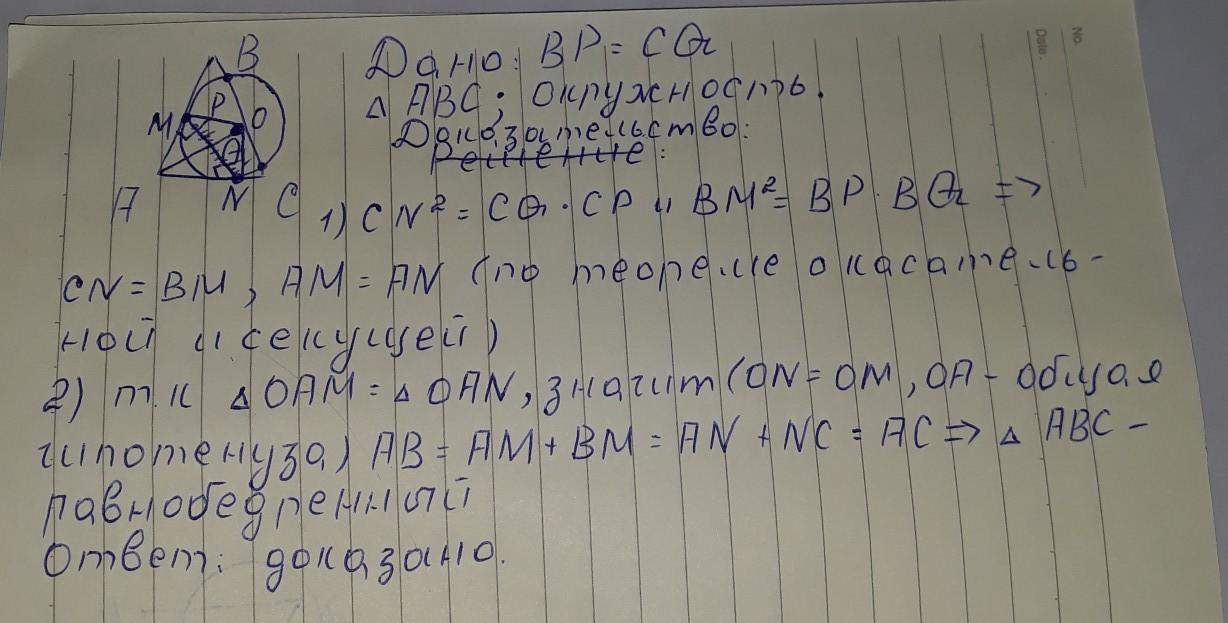 B
P
M
O
Q
A
N
C
Дано: BP = CQ
△ ABC; окружность.
Доказательство:
Решение:
1) CN² = CQ · CP и BM² = BP · BQ =>
CN = BM, AM = AN (по теореме о касатель-
ной и секущей)
2) т.к △ OAM = △ OAN, значит (ON = OM, OA - общая
гипотенуза) AB = AM + BM = AN + NC = AC => △ ABC -
равнобедренный
Ответ: доказано.
No.
Date.